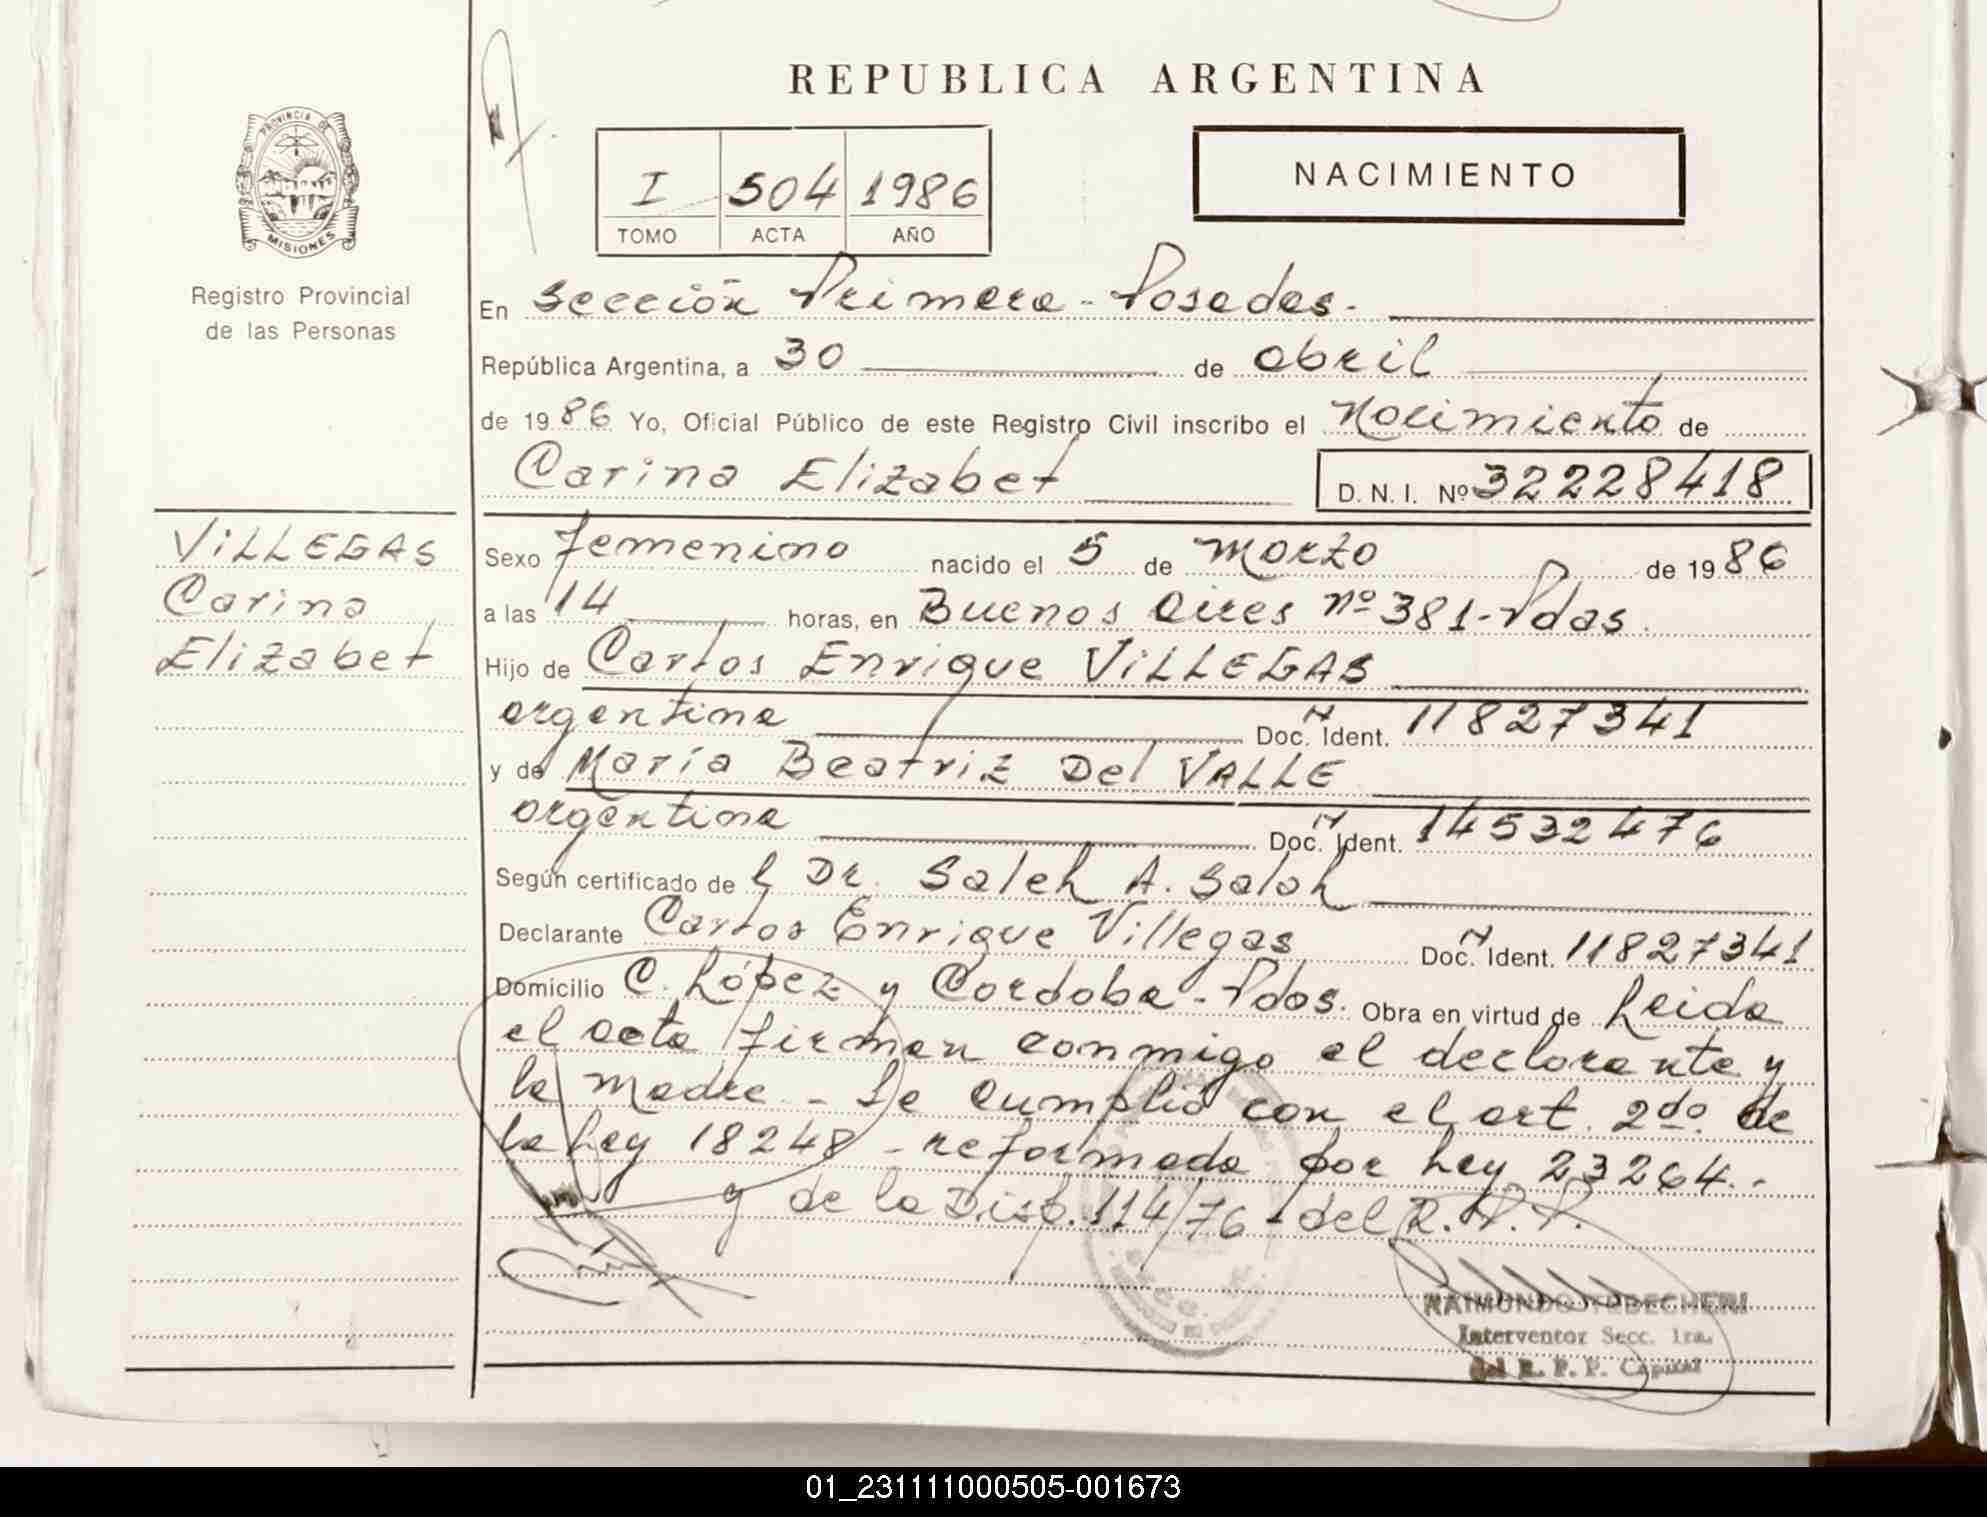 REPUBLICA ARGENTINA
PROVINCIA DE
MISIONES
Registro Provincial
de las Personas
I 504 1986
TOMO ACTA AÑO
NACIMIENTO
En Sección Primera - Posadas.
República Argentina, a 30 de abril
de 1986 Yo, Oficial Público de este Registro Civil inscribo el Nacimiento de
Carina Elizabet D. N. I. Nº 32228418
VILLEGAS
Carina
Elizabet
Sexo femenino nacido el 5 de Marzo de 1986
a las 14 horas, en Buenos Aires nº 381 - Pdas.
Hijo de Carlos Enrique VILLEGAS
argentina Doc. N Ident. 11827341
y de María Beatriz Del VALLE
argentina Doc. N Ident. 14532476
Según certificado de l Dr. Saleh A. Salah
Declarante Carlos Enrique Villegas Doc. N Ident. 11827341
Domicilio C. López y Cordoba - Pdas. Obra en virtud de Leida
el acta firman conmigo el declarante y
la madre. - Se cumplió con el art. 2do. de
la Ley 18248 - reformada por Ley 23264. -
y de la Disp. 114/76 - del R.P.P.
RAIMUNDO
Interventor Secc. 1ra.
del R. P. P. Capital
01_231111000505-001673